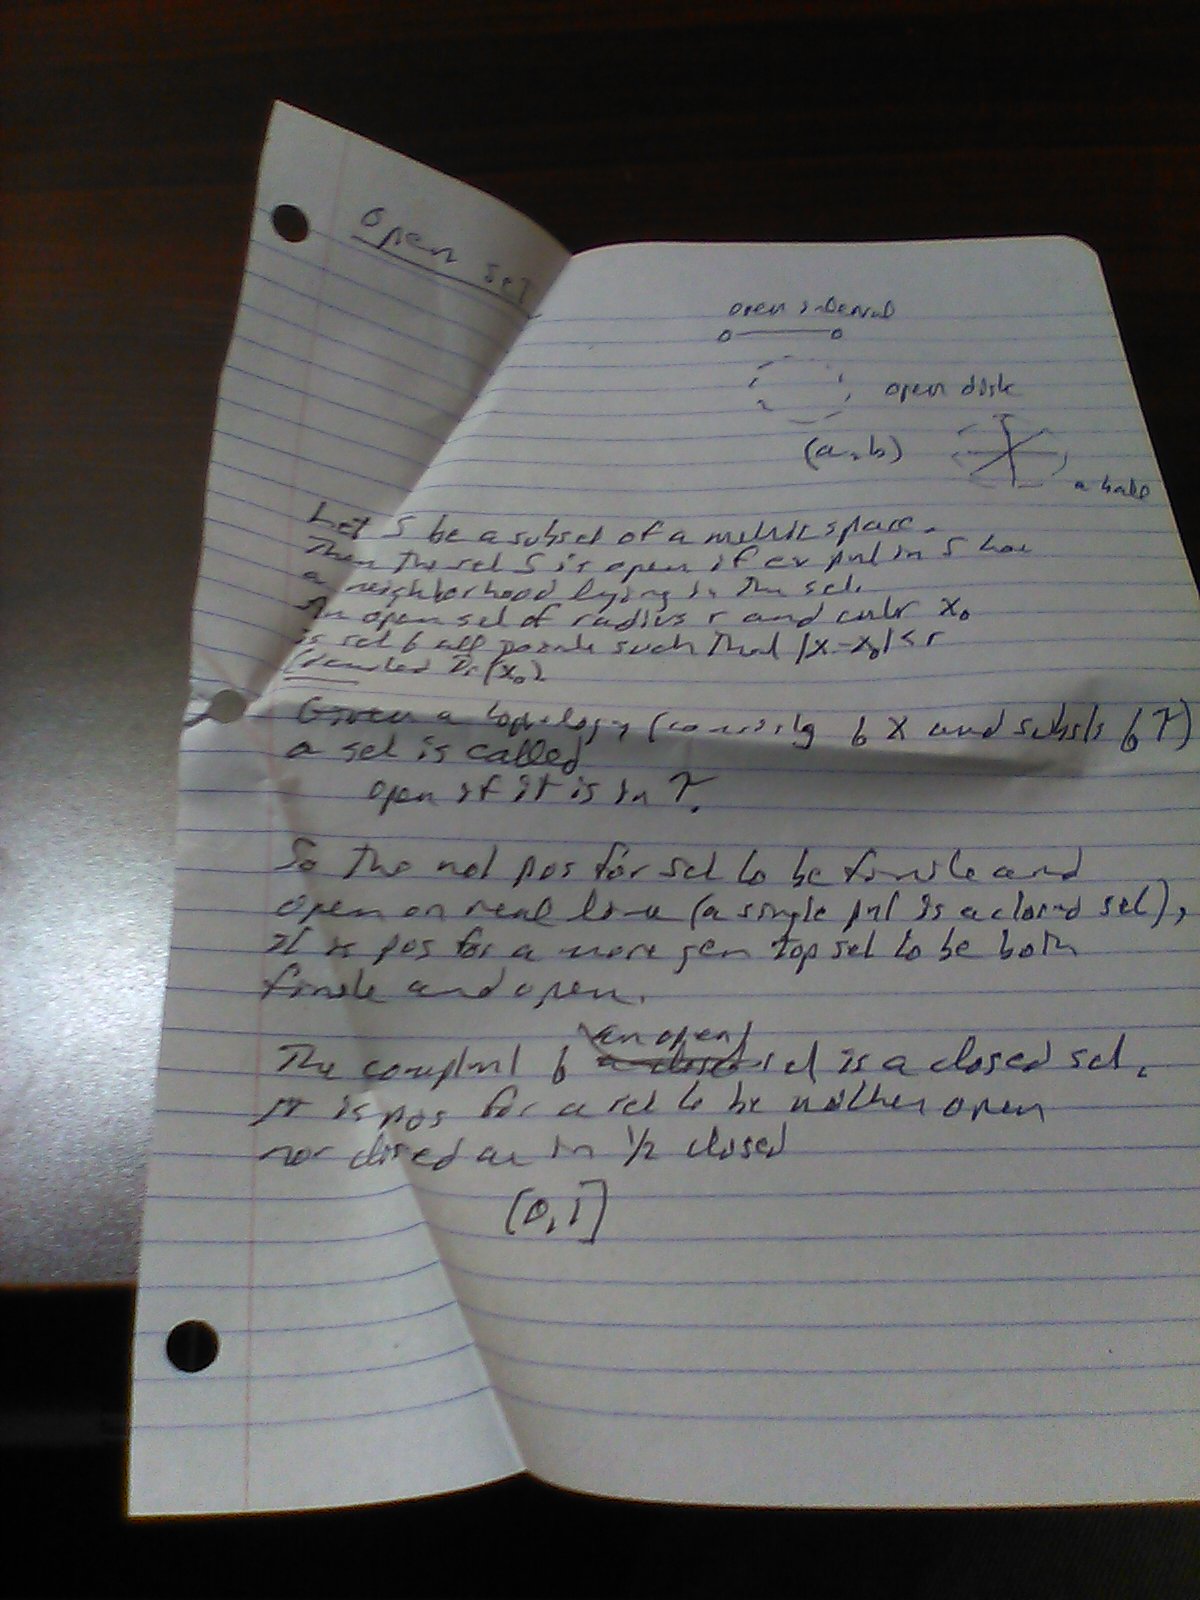 open set
open interval
open disk
(a, b)
a ball
Let S be a subset of a metric space.
Then the set S is open if ev pnt in S has
a neighborhood lying in the set.
An open set of radius r and center x₀
is set of all points such that |x-x₀| < r
(denoted Dr(x₀).
Given a topology (consistg of X and subsets of T)
a set is called
open if it is in T.
So tho not pos for set to be finite and
open on real line (a single pnt is a closed set),
it is pos for a more gen top set to be both
finite and open.
an open
The complmt of set is a closed set.
It is pos for a set to be neither open
nor closed as in 1/2 closed
(0, 1]